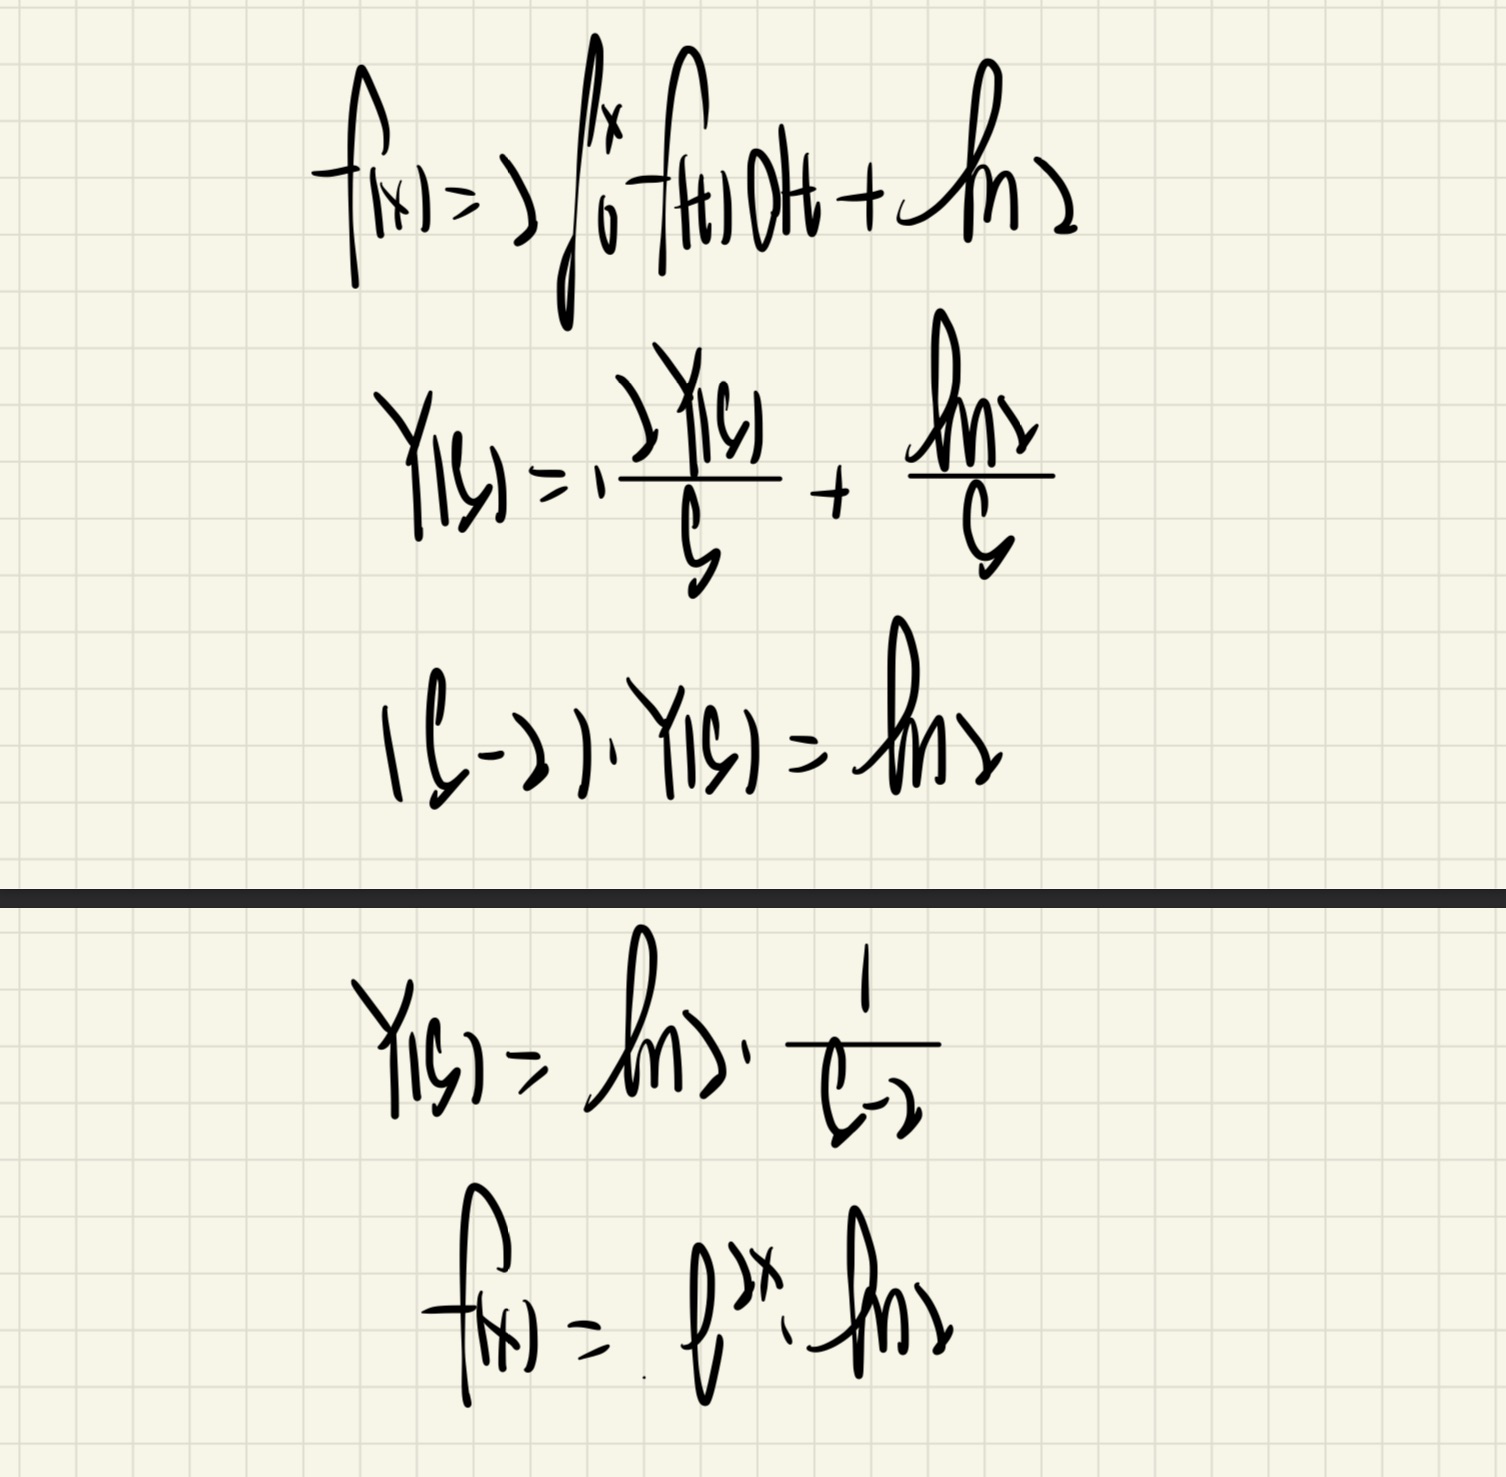 f(x) = 2∫₀ˣ f(t)dt + ln2
Y(s) = · 2Y(s)/s + ln2/s
(s-2)·Y(s) = ln2
Y(s) = ln2 · 1/(s-2)
f(x) = e²ˣ · ln2